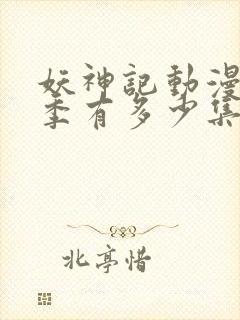 妖神記動漫
季有多少集
北亭惜